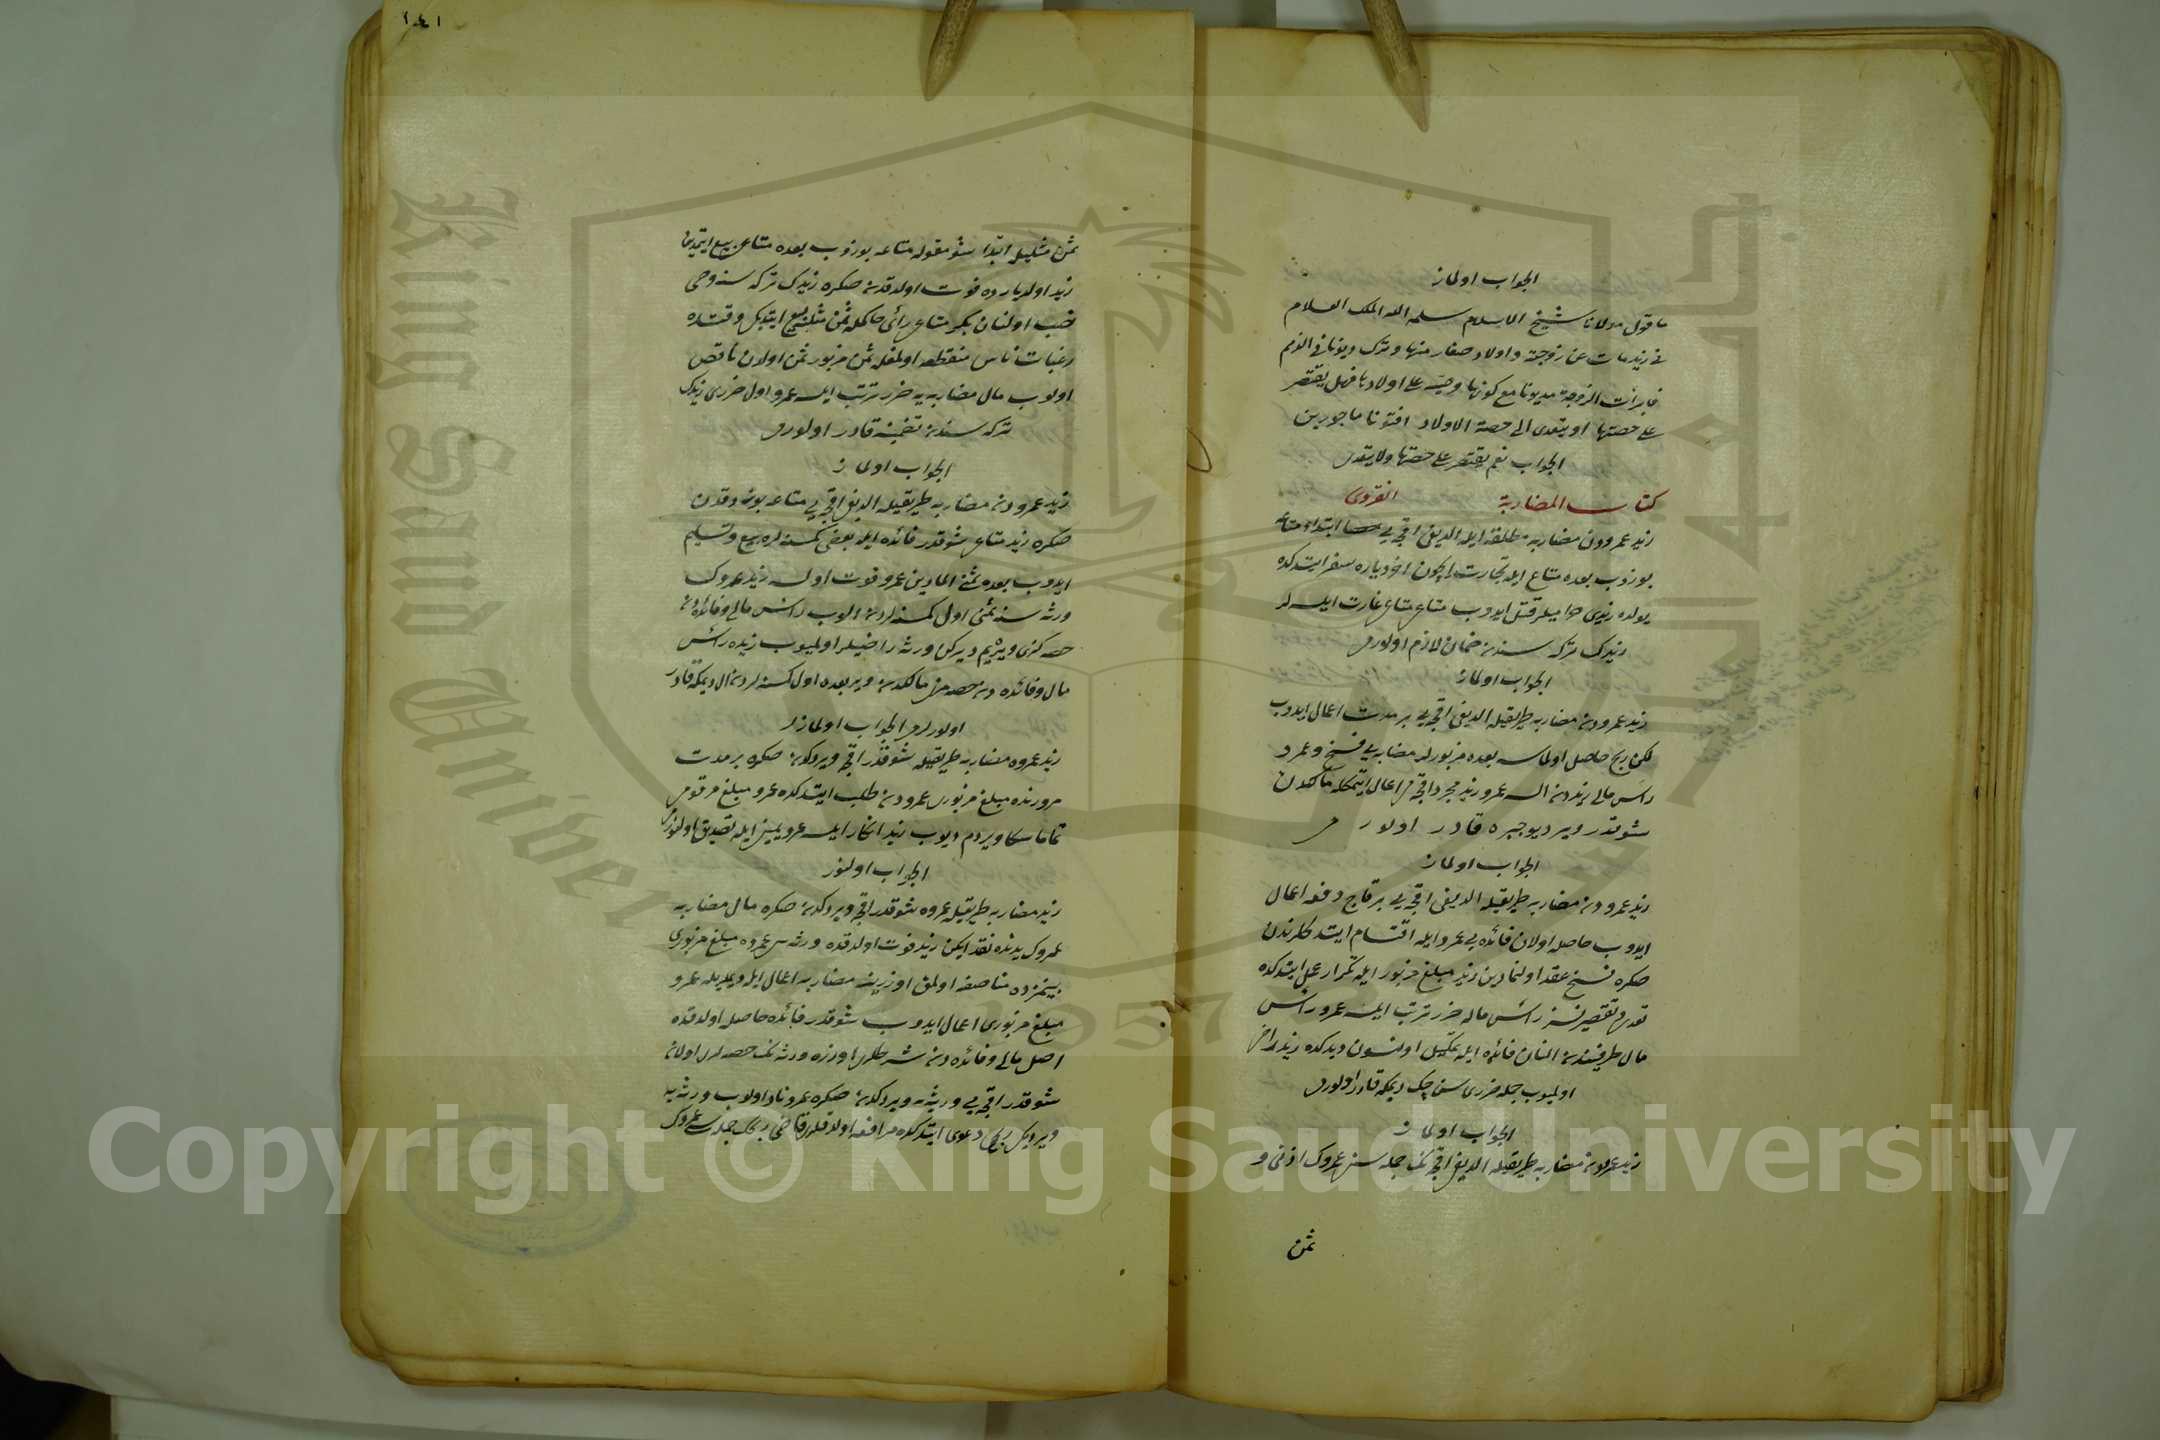 الجواب اولماز
ما قول مولانا شيخ الاسلام سلمه الله الملك العلام
في زيد مات عن زوجة واولاد صغار منها وترك ديونا في الذمم
فابرأت الزوجة مديونا مع كونها وصية على اولادها فهل يقتصر
على حصتها او يتعدى الى حصة الاولاد افتونا مأجورين
الجواب نعم يقتصر على حصتها ولا يتعدى
كتاب المضاربة انقروى
زيد عمرودن مضاربه مطلقه ايله الديغى اقچه يى ابتداء متاعه
بوزوب بعده متاع ايله تجارت ايچون اخر دياره سفر ايتدكده
يولده زيدى حراميلر قتل ايدوب متاع غارت ايلسه لر
زيدك تركه سندن ضمان لازم اولورمى
الجواب اولماز
زيد عمرودن مضاربه طريقيله الديغى اقچه يى بر مدت اعمال ايدوب
لكن ربح حاصل اولماسه بعده مزبورلر مضاربه يى فسخ وعمرو
رأس مالى زيددن السه عمرو زيده مجرد اقچه مى اعمال ايتمكله مالكدن
شو قدر وير ديو جبره قادر اولورمى
الجواب اولماز
زيد عمرودن مضاربه طريقيله الديغى اقچه يى بر قاچ دفعه اعمال
ايدوب حاصل اولان فائده يى عمرو ايله اقتسام ايتدكلرندن
صكره فسخ عقد اولنمادين زيد مبلغ مزبور ايله تكرار عمل ايتدكده
تعدى وتقصيرسز رأس ماله ضرر ترتب ايلسه عمرو رأس
مال طرفيندن النان فائده ايله تكميل اولنسون ديدكده زيد راضى
اولميوب جمله ضررى سن چك ديمكه قادر اولورمى
الجواب اولماز
زيد عمرودن مضاربه طريقيله الديغى اقچه نك جمله سنى عمروك اذنى و
ثمن
١٤١
ثمن مثليله ابتدا شو مقوله متاعه بوزوب بعده متاعى بيع ايتمدين
زيد اول ديارده فوت اولدقدن صكره زيدك تركه سنه وصى
نصب اولنان بكر متاعى رأى حاكمله ثمن مثلنه بيع ايتديكى وقتده
رغبات ناس منقطعه اولمغله ثمن مزبور ثمن اولدن ناقص
اولوب مال مضاربه يه ضرر ترتب ايلسه عمرو اول ضررى زيدك
تركه سندن تضمينه قادر اولورمى
الجواب اولماز
زيد عمرودن مضاربه طريقيله الديغى اقچه يى متاعه بوزدقدن
صكره زيد متاعى شو قدر فائده ايله بعض كمسنه لره بيع وتسليم
ايدوب بعده ثمنى المادين عمرو فوت اولسه زيد عمروك
ورثه سنه ثمنى اول كمسنه لردن الوب رأس مالى وفائده دن
حصه كزى ويريم ديركن ورثه راضيلر اولميوب زيده رأس
مال وفائده دن حصه مزى مالكدن وير بعده اول كمسنه لردن ال ديمكه قادر
اولورلرمى الجواب اولمازلر
زيد عمروه مضاربه طريقيله شو قدر اقچه ويردكدن صكره بر مدت
مرورنده مبلغ مزبورى عمرودن طلب ايتدكده عمرو مبلغ مرقومى
تماما سكا ويردم ديوب زيد انكار ايلسه عمرو يمين ايله تصديق اولنورمى
الجواب اولنور
زيد مضاربه طريقيله عمروه شو قدر اقچه ويردكدن صكره مال مضاربه
عمروك يدنده نقد ايكن زيد فوت اولدقده ورثه سى عمروه مبلغ مزبورى
بينمزده مناصفه اولمق اوزرينه مضاربه اعمال ايله ديملريله عمرو
مبلغ مزبورى اعمال ايدوب شو قدر فائده حاصل اولدقده
اصل مالى وفائده دن شرطلرى اوزره ورثه نك حصه لرى اولان
شو قدر اقچه يى ورثه يه ويردكدن صكره عمرو نادم اولوب ورثه يه
ويرديكى ربحى دعوى ايتدكده مرافعه اولدقلرى قاضى ربحك جمله سى عمروك